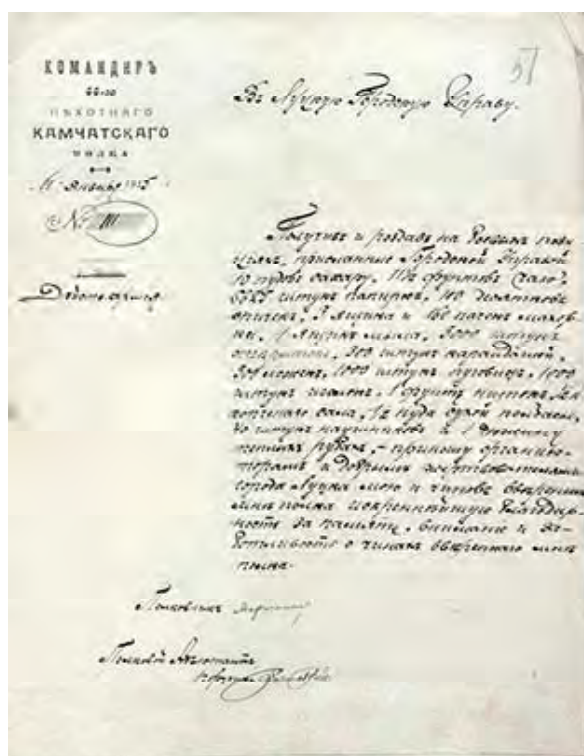 КОМАНДИРЪ
44-го
ПѢХОТНАГО
КАМЧАТСКАГО
ПОЛКА
11 Января 1915
№ 111
51
Въ Луцкую Городскую Управу.
Получивъ и роздавъ на боевыхъ пози
ціяхъ, присланные Городской Управой
10 пудовъ сахару, 11½ фунтовъ
штукъ папиросъ, 140 десятковъ
спичекъ, 3 ящика и пачекъ махор
ки, 1 ящикъ мыла, 3000 штукъ
300 штукъ карандашей,
300 1000 штукъ пуговицъ, 1000
штукъ иголокъ, 1 фунтъ нитокъ,
копченаго сала, 1½ пуда сухой
штукъ наушниковъ и 1 дюжину
теплыхъ рубахъ, – приношу организа-
торамъ и добрымъ жертвователямъ
города Луцка мою и чиновъ ввѣреннаго
мнѣ полка искреннѣйшую благодар-
ность за память, вниманіе и за-
ботливость о чинахъ ввѣреннаго мнѣ
полка.
Полковникъ
Полковой Адъютантъ